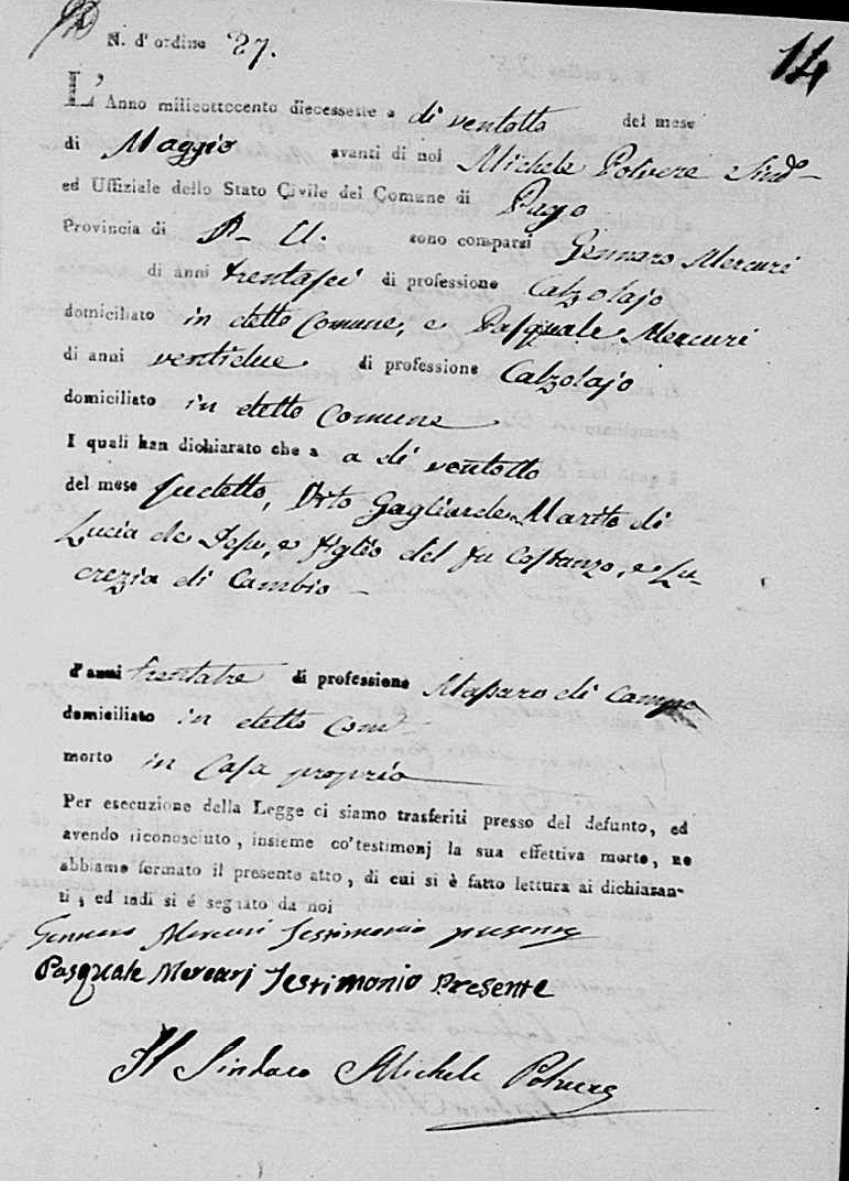 N. d'ordine 27.
14
L'Anno milleottocento diecessette a di ventotto del mese
di Maggio avanti di noi Michele Polvere Sind.o
ed Uffiziale dello Stato Civile del Comune di Pago
Provincia di P. U. sono comparsi Gennaro Mercuri
di anni trentasei di professione Calzolajo
domiciliato in detto Comune, e Pasquale Mercuri
di anni ventidue di professione Calzolajo
domiciliato in detto Comune
I quali han dichiarato che a a di ventotto
del mese sudetto, Vito Gagliarde Marito di
Lucia de Iesu, e figlio del fu Costanzo, e Lu-
crezia di Cambio
d'anni trentatre di professione Massaro di Campo
domiciliato in detto Com.e
morto in Casa propria
Per esecuzione della Legge ci siamo trasferiti presso del defunto, ed
avendo riconosciuto, insieme co'testimonj la sua effettiva morte, ne
abbiamo formato il presente atto, di cui si è fatto lettura ai dichiaran-
ti, ed indi si é segnato da noi
Gennaro Mercuri Testimonio presente
Pasquale Mercurj Testimonio Presente
Il Sindaco Michele Polvere